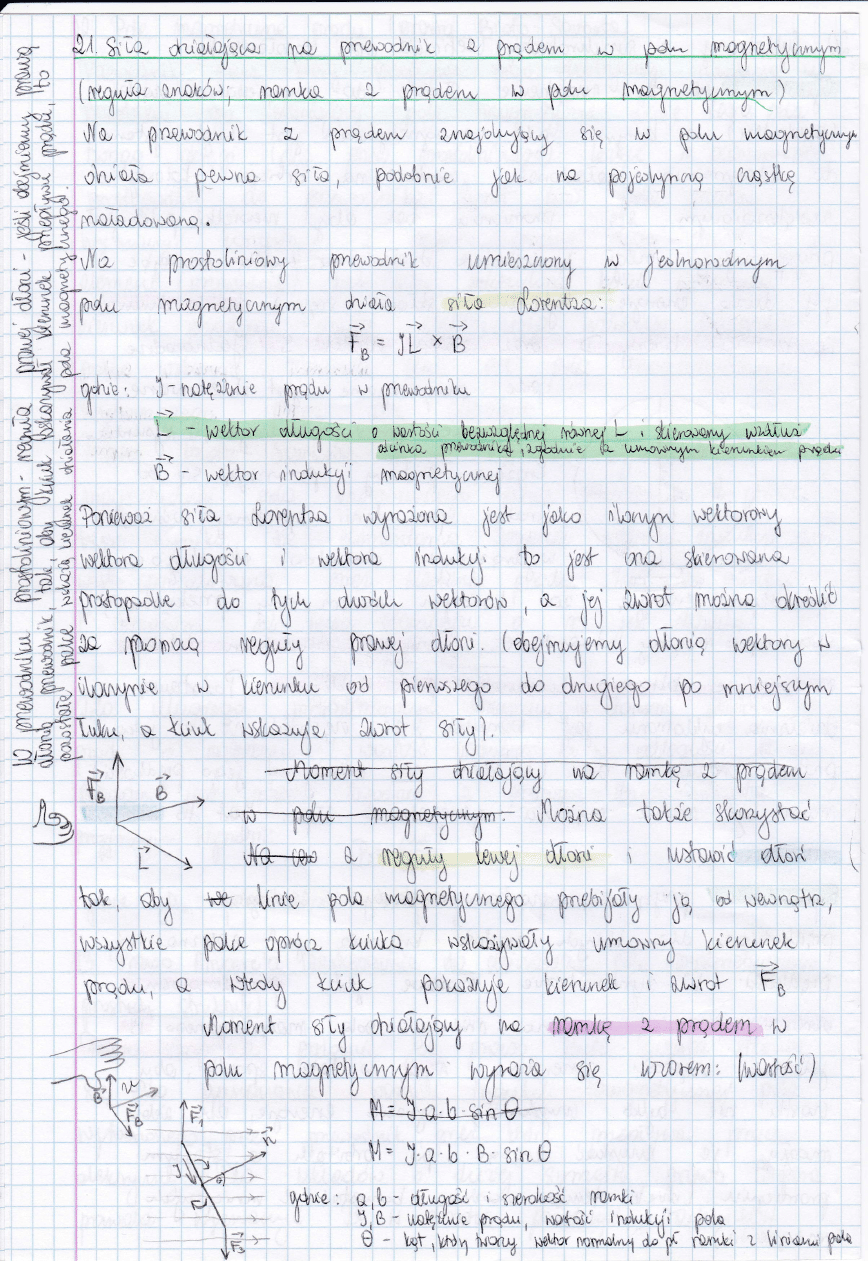 21. Siła działająca na przewodnik z prądem w polu magnetycznym
(reguła znaków; ramka z prądem w polu magnetycznym)
Na przewodnik z prądem znajdujący się w polu magnetycznym
działa pewna siła, podobnie jak na pojedynczą cząstkę
naładowaną.
Na prostoliniowy przewodnik umieszczony w jednorodnym
polu magnetycznym działa siła Lorentza:
F_B = I L × B
gdzie: I - natężenie prądu w przewodniku
L - wektor długości o wartości bezwzględnej równej L i skierowany wzdłuż
odcinka przewodnika, zgodnie z umownym kierunkiem prądu
B - wektor indukcji magnetycznej
Ponieważ siła Lorentza wyrażona jest jako iloczyn wektorowy
wektora długości i wektora indukcji to jest ona skierowana
prostopadle do tych dwóch wektorów, a jej zwrot można określić
za pomocą reguły prawej dłoni. (obejmujemy dłonią wektory w
iloczynie w kierunku od pierwszego do drugiego po mniejszym
łuku, a kciuk wskazuje zwrot siły).
Moment siły działający na ramkę z prądem
w polu magnetycznym. Można także skorzystać
Na z reguły lewej dłoni i ustawić dłoń
tak, aby linie pola magnetycznego przebijały ją od wewnątrz,
wszystkie palce oprócz kciuka wskazywały umowny kierunek
prądu, a wtedy kciuk pokazuje kierunek i zwrot F_B
Moment siły działający na ramkę z prądem w
polu magnetycznym wyraża się wzorem: (wartość)
M = I·a·b·sin θ
M = I·a·b·B·sin θ
gdzie: a,b - długość i szerokość ramki
I,B - natężenie prądu, wartość indukcji pola
θ - kąt, który tworzy wektor normalny do pł ramki z liniami pola
F_B
B
L
B
v
F_B
F_1
n
I
θ
W przewodniku prostoliniowym - reguła prawej dłoni - jeśli obejmiemy prawą
dłonią przewodnik, tak, aby kciuk wskazywał kierunek przepływu prądu, to
pozostałe palce wskażą działania pola magnetycznego.